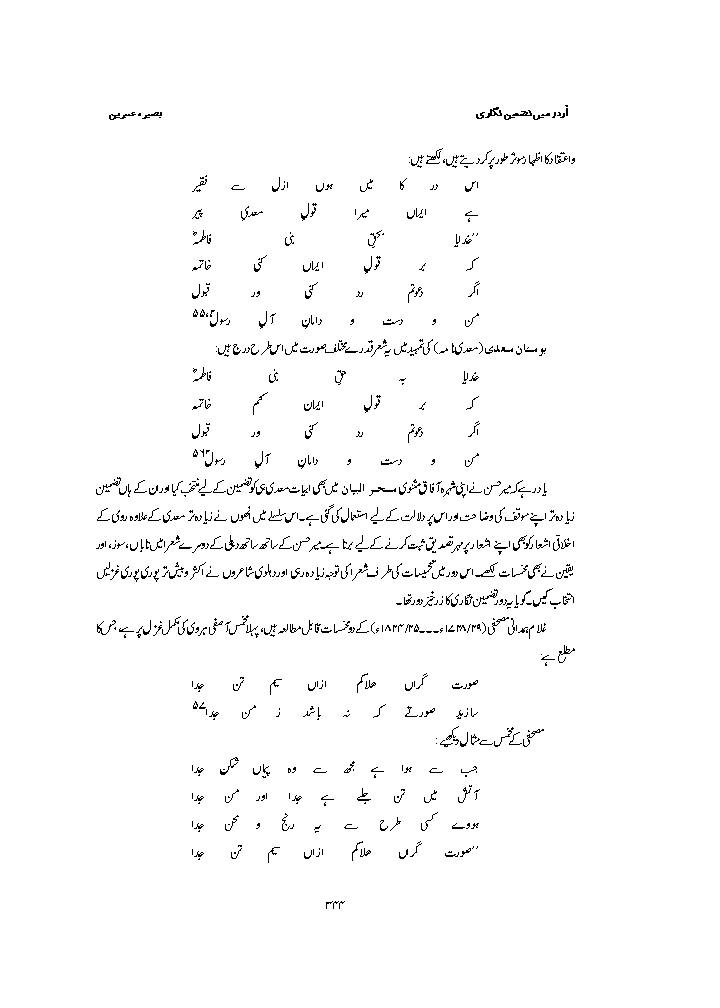 اُردو میں تضمین نگاری
بصیرہ عنبرین
واعتقاد کا اظہار موثر طور پر کر دیتے ہیں، لکھتے ہیں:
اس در کا میں ہوں ازل سے فقیر
ہے ایماں میرا قولِ سعدی پیر
”خدایا بحقِ بنی فاطمہؓ
کہ بر قولِ ایماں کنی خاتمہ
اگر دعوتم رد کنی ور قبول
من و دست و دامانِ آلِ رسولؐ“ ۵۵
بوستان سعدی (سعدی نامہ) کی تمہید میں یہ شعر قدرے مختلف صورت میں اس طرح درج ہیں:
خدایا بہ حقِ بنی فاطمہؓ
کہ بر قولِ ایمان کنم خاتمہ
اگر دعوتم رد کنی ور قبول
من و دست و دامانِ آلِ رسولؐ ۵۶
یاد رہے کہ میر حسن نے اپنی شہرہ آفاق مثنوی سحر البیان میں بھی ابیات سعدی ہی کو تضمین کے لیے منتخب کیا اور ان کے ہاں تضمین
زیادہ تر اپنے موقف کی وضاحت اور اس پر دلالت کے لیے استعمال کی گئی ہے۔ اس سلسلے میں انھوں نے زیادہ تر سعدی کے علاوہ رومی کے
اخلاقی اشعار کو بھی اپنے اشعار پر مہرِ تصدیق ثبت کرنے کے لیے برتا ہے۔ میر حسن کے ساتھ ساتھ دہلی کے دوسرے شعرا میں تاباں، سوز، اور
یقین نے بھی مخمسات لکھے۔ اس دور میں تخمیسات کی طرف شعرا کی توجہ زیادہ رہی اور دہلوی شاعروں نے اکثر و بیش تر پوری پوری غزلیں
انتخاب کیں۔ گویا یہ دور تضمین نگاری کا زرخیز دور تھا۔
غلام ہمدانی مصحفی (۱۷۴۸/۴۹ء۔۔۔۱۸۲۴/۲۵ء) کے دو مخمسات قابل مطالعہ ہیں، پہلا مخمس آصفی ہروی کی مکمل غزل پر ہے، جس کا
مطلع ہے:
صورت گراں ہلاکم ازاں سیم تن جدا
سازید صورتے کہ نہ باشد ز من جدا ۵۷
مصحفی کے مخمس سے مثال دیکھیے:
جب سے ہوا ہے مجھ سے وہ پیماں شکن جدا
آتش میں تن جلے ہے جدا اور من جدا
ہووے کسی طرح سے یہ رنج و محن جدا
”صورت گراں ہلاکم ازاں سیم تن جدا
۳۴۴